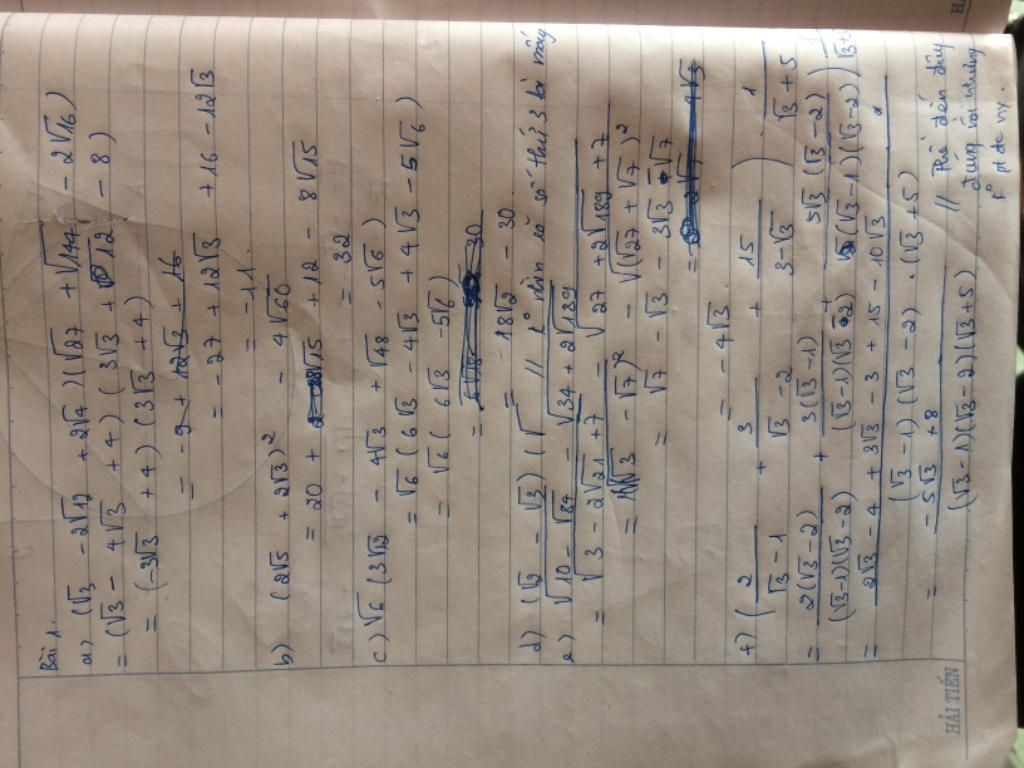 Bài 1.
a) (√3 - 2√12 + 2√4)(√27 + √144 - 2√16)
= (√3 - 4√3 + 4)(3√3 + 12 - 8)
= (-3√3 + 4)(3√3 + 4)
= -27 + 12√3 + 16 - 12√3
= -11
b) (2√5 + 2√3)² - 4√60
= 20 + 8√15 + 12 - 8√15
= 32
c) √6 (3√12 - 4√3 + √48 - 5√6)
= √6 (6√3 - 4√3 + 4√3 - 5√6)
= √6 (6√3 - 5√6)
= 18√2 - 30
d) (√2 - √3)(√ // số thứ 3 là mấy
e) √10 - √84 - √34 + 2√189
= √3 - 2√21 + 7 - √27 + 2√189 + 7
= √(√3 - √7)² - √(√27 + √7)²
= √7 - √3 - 3√3 - √7
= - 4√3
f) (2/(√3 - 1) + 3/(√3 - 2) + 15/(3 - √3)) 1/(√3 + 5)
= 2(√3 - 2)/((√3 - 1)(√3 - 2)) + 3(√3 - 1)/((√3 - 1)(√3 - 2)) + 5√3(√3 - 2)/((√3 - 1)(√3 - 2))
= (2√3 - 4 + 3√3 - 3 + 15 - 10√3)/((√3 - 1)(√3 - 2) . (√3 + 5))
= (-5√3 + 8)/((√3 - 1)(√3 - 2)(√3 + 5)) // đến đây
đúng rồi nhưng
HẢI TIẾN